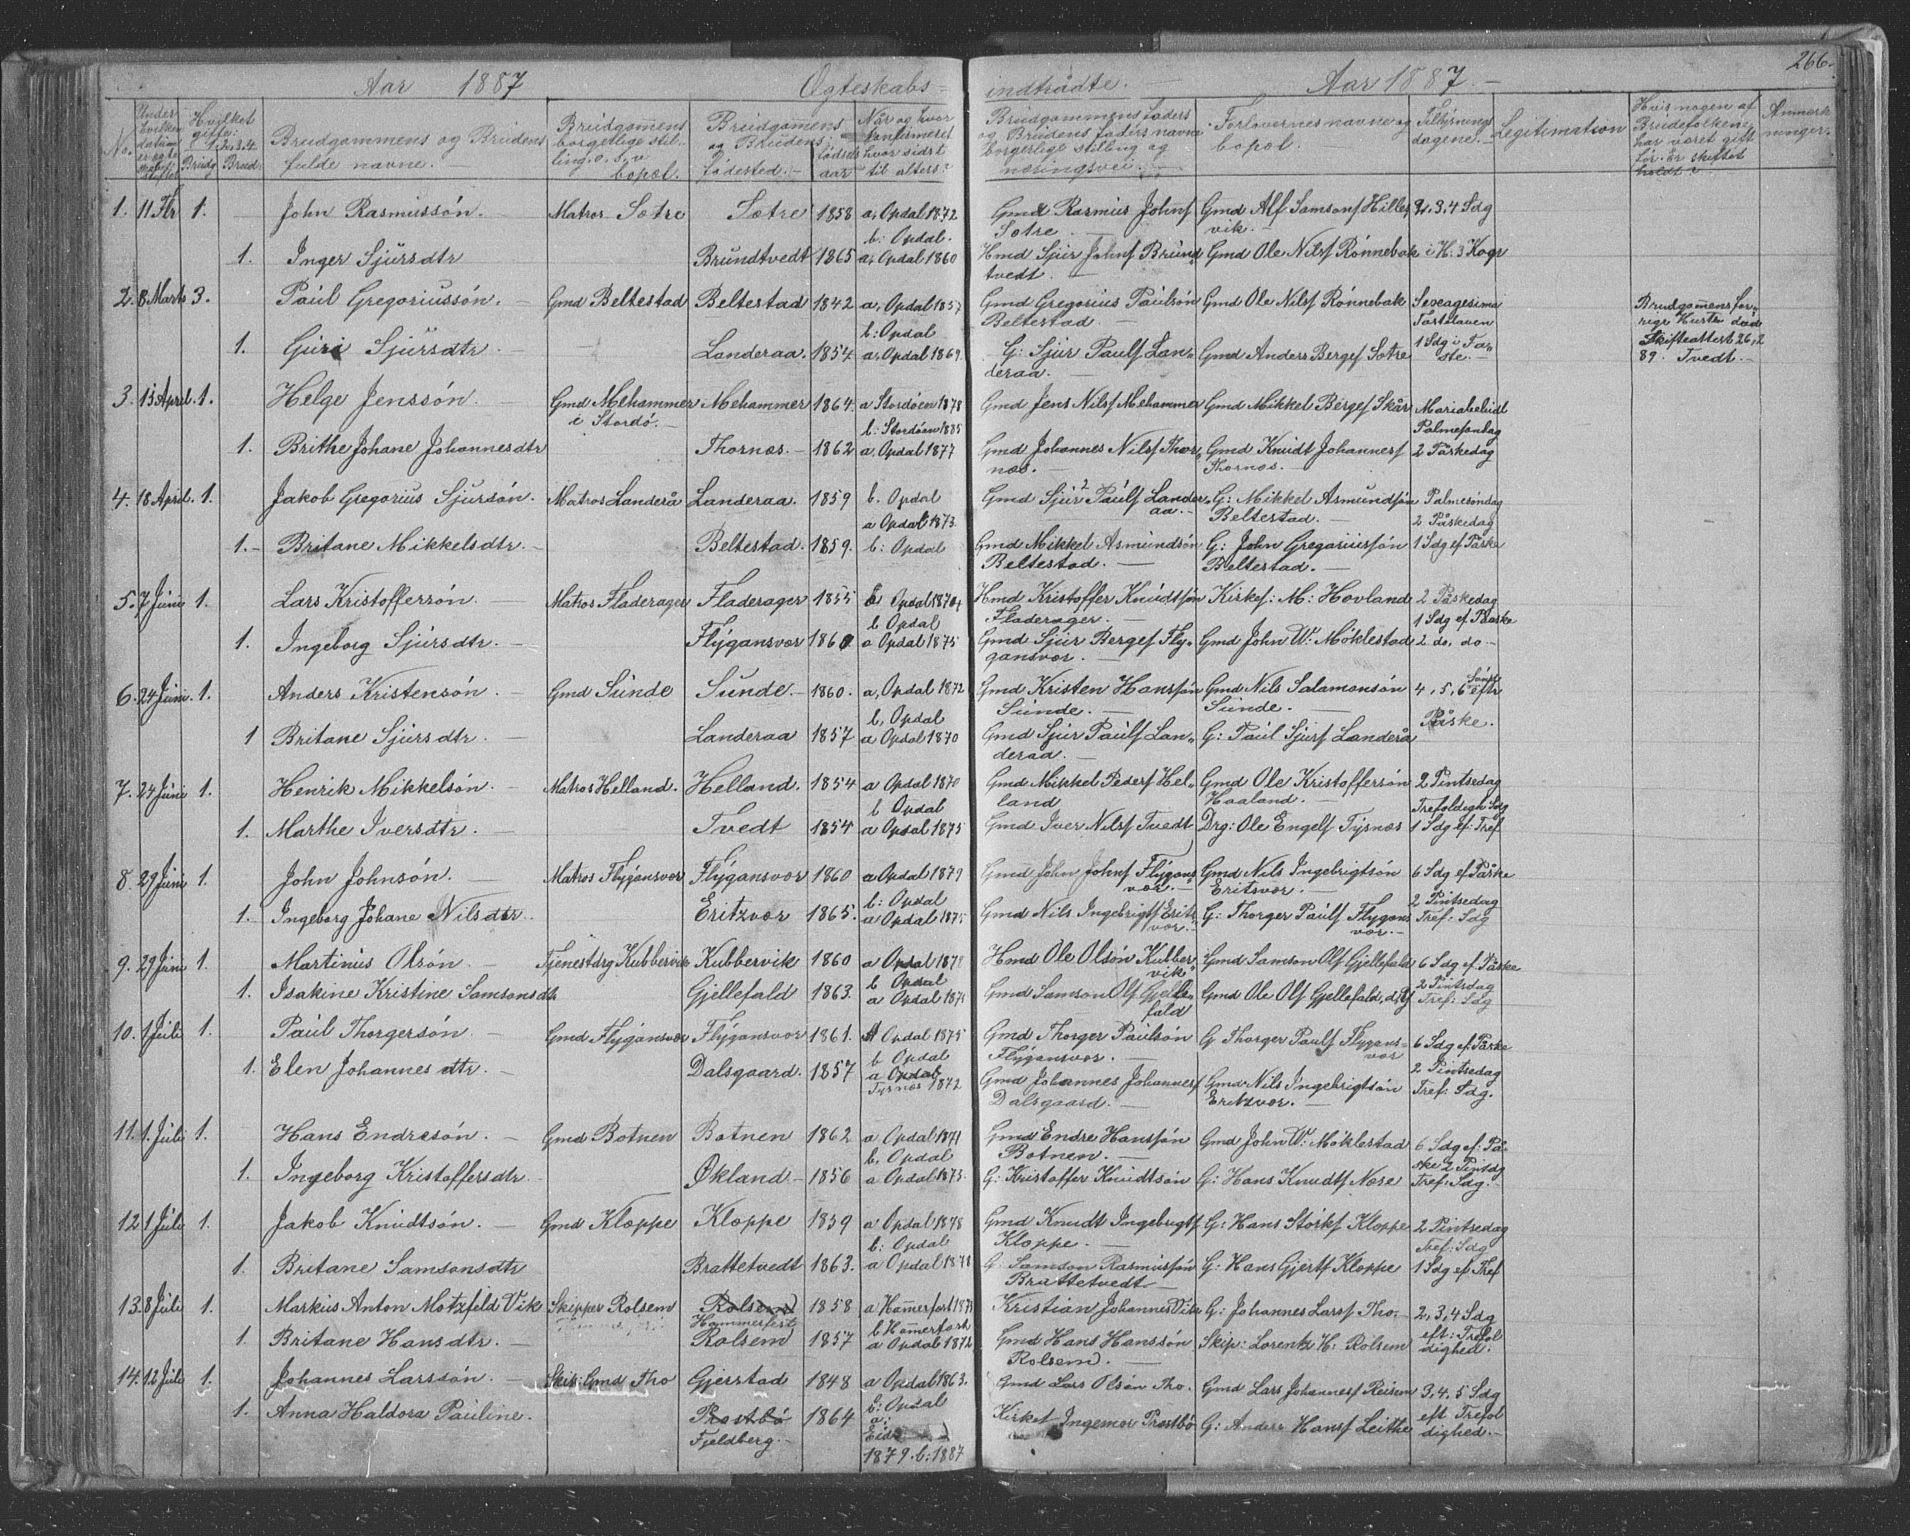 266.
Aar 1887 Ægteskabs= indtrådte. Aar 1887.
No.
Under hvilken datum
Hvilket gifte: 1.2.3.4. Brudg. Brud.
Brudgommens og Brudens fulde navne.
Brudgommens borgerlige stilling o.s.v. bopæl.
Brudgommens og Brudens fødested.
fødsels aar
Når og hvor konfirmeret hvor sidst til alters?
Brudgommens faders og Brudens faders navne borgerlige stilling og næringsvei.
Forlovernes navne og bopæl.
Tillysnings dagene.
Legitimation
Hvis nogen af Brudefolkene har været gift før. Er skiftet holdt?
Anmerkninger.
1. 11 Fbr 1. John Rasmussön. Matros Sætre Sætre 1858 a, Opdal 1872 Gmd Rasmus Johns Gmd Alf Samsons Hilles 2, 3, 4 Sdg
b: Opdal. Sætre vik.
1. Inger Sjursdtr Brundtvedt 1865 a, Opdal 1860 Hmd Sjur Johns Brund Gmd Ole Nils Rønnebak i H. 3 Kogr
tvedt.
2. 8 Marts 3. Paul Gregoriussön. Gmd Beltestad Beltestad 1842 a, Opdal 1857 Gmd Gregorius Paulsön Gmd Ole Nils Rønnebak Sexagesima Brudgommens for-
b: Opdal Beltestad. Fastelaven rige Hustr død
1. Guri Sjursdtr. Landeraa. 1854 a, Opdal 1869. G: Sjur Pauls Lan- Gmd Anders Berges Sætre 1 Sdg i Fa- Skifteattest 26,2
deraa. ste. 89. Tvedt.
3. 15 April. 1. Helge Jenssön. Gmd Mehammer Mehammer 1864. a Stordöen 1878 Gmd Jens Nils Mehammer Gmd Mikkel Berges Skår Mariabebud
i Stordö. b: Stordöen 1885 Palmesöndag
1. Brithe Johane Johannesdtr Thornæs. 1862 a, Opdal 1877 Gmd Johannes Nils Thor Gmd Knudt Johannes 2 Påskedag
næs. Thornæs.
4. 18 April. 1. Jakob Gregorius Sjursön. Matros Landerå Landeraa. 1859 b. Opdal Gmd Sjur Pauls Lander G: Mikkel Asmundsön Palmesöndag
a Opdal 1873. aa. Beltestad. 2 Påskedag
1. Britane Mikkelsdtr. Beltestad. 1859. b: Opdal Gmd Mikkel Asmundsön G: John Gregoriussön 1 Sdg ef Påske
Beltestad. Beltestad.
5. 7 Juni 1. Lars Kristoffersön. Matros Fladerager Fladerager 1855 Opdal 1870 Hmd Kristoffer Knudtsön Kirkes: M: Hovland 2 Påskedag
b Opdal Fladerager. 1 Sdg ef. Påske
1. Ingeborg Sjursdtr. Flygansvær 1860 a Opdal 1875 Gmd Sjur Berges Fly- Gmd John W. Møklestad 2 do, do
gansvær.
6. 24 Juni. 1. Anders Kristensön. Gmd Sunde Sunde. 1860. a, Opdal 1872 Gmd Kristen Hanssön Gmd Nils Salamonsön 4, 5, 6 Sönd. eftr
b, Opdal Sunde. Sunde. Påske.
1 Britane Sjursdtr. Landeraa 1857 a Opdal 1870 Gmd Sjur Pauls Lan- G: Paul Sjurs Landerå
deraa.
7. 24 Juni 1. Henrik Mikkelsön. Matros Helland. Helland. 1854 a Opdal 1870 Gmd Mikkel Peders Hel- Gmd Ole Kristoffersön 2 Pintsedag
b Opdal land Haaland. Trefoldigh Sdg
1. Marthe Iversdtr. Tvedt 1854 a Opdal 1875 Gmd Iver Nils Tvedt Drg: Ole Engels Tysnæs 1 Sdg ef: Tref
8. 29 Juni 1. John Johnsön. Matros Flygansvær Flygansvær 1860 a Opdal 1879 Gmd John Johns Flygans Gmd Nils Ingebrigtsön 6 Sdg ef Påske
b: Opdal vær. Eritsvær. 2 Pintsedag
1. Ingeborg Johane Nilsdtr. Eritzvær 1865. a Opdal 1875 Gmd Nils Ingebrigts Erits G: Thorger Pauls Flygans Tref: Sdg
vær. vær.
9. 29 Juni 1. Martinus Olsön. Tjenestdrg Kubbervik Kubbervik 1860 a Opdal 1878 Hmd Ole Olsön Kubber Gmd Samson Ols Gjellefald 6 Sdg ef: Påske
b Opdal vik 2 Pintsdag
1. Isakine Kristine Samsonsdtr Gjellefald 1863. a Opdal Gmd Samson Ols Gjelle Gmd Ole Ols Gjellefald, Tref: Sdg
fald
10. 1 Juli 1. Paul Thorgersön. Gmd Flygansvær Flygansvor 1861. a Opdal 1875 Gmd Thorger Paulsön G Thorger Pauls Flygans- 6 Sdg ef. Påske
b Opdal Flygansvær. vær 2 Pintsedag
1. Elen Johannesdtr. Dalsgaard. 1857 a Opdal Gmd Johannes Johannes Gmd Nils Ingebrigtsön Tref: Sdg.
Tysnæs 1872 Dalsgaard. Eritzvær.
11. 1. Juli 1. Hans Endresön. Gmd Botnen Botnen 1862 a Opdal Gmd Endre Hanssön Gmd John W. Møklestad 6 Sdg ef: På-
b, Opdal Botnen. ske 2 Pintsdg
1. Ingeborg Kristoffersdtr Økland 1856 a Opdal 1873. G: Kristoffer Knudtsön G: Hans Knudts Næse Tref: Sdg.
12 1 Juli 1. Jakob Knudtsön. Gmd Kloppe Kloppe 1859 a Opdal 1878 Gmd Knudt Ingebrigts G: Hans Størks Kloppe 2 Pintsedag
b: Opdal Kloppe. Tref: Sdg
1. Britane Samsonsdtr Brattetvedt 1863. a Opdal 1878 G: Samson Rasmussön G: Hans Gjerts Kloppe 1 Sdg ef Tref
Brattetvedt
13. 8 Juli 1. Markus Anton Motzfeld Vik Skipper Rolsem Rolsem 1858 a Hammerfest 1873 Kristian Johannes Vik G: Johannes Larss Tho. 2, 3, 4 Sdg
Hammerfest b Hammerfest eft: Trefol
1. Britane Hansdtr. Rolsem 1857 a Opdal 1872 Gmd Hans Hanssön Skip: Lorentz H: Rolsem dighed.
Rolsem.
14. 12 Juli 1. Johannes Larssön. Skip: Gmd Tho Gjerstad 1848 a Opdal 1863. Gmd Lars Olsön Tho. Gmd Lars Johannes Reisem 3, 4, 5 Sdg
b: Opdal eft Trefol
1. Anna Haldora Pauline. Prostbö 1864 a: Kirkes Ingemar Prostbö G: Anders Hans Leithe dighed.
Fjeldberg. Eid
1879. b: 1887